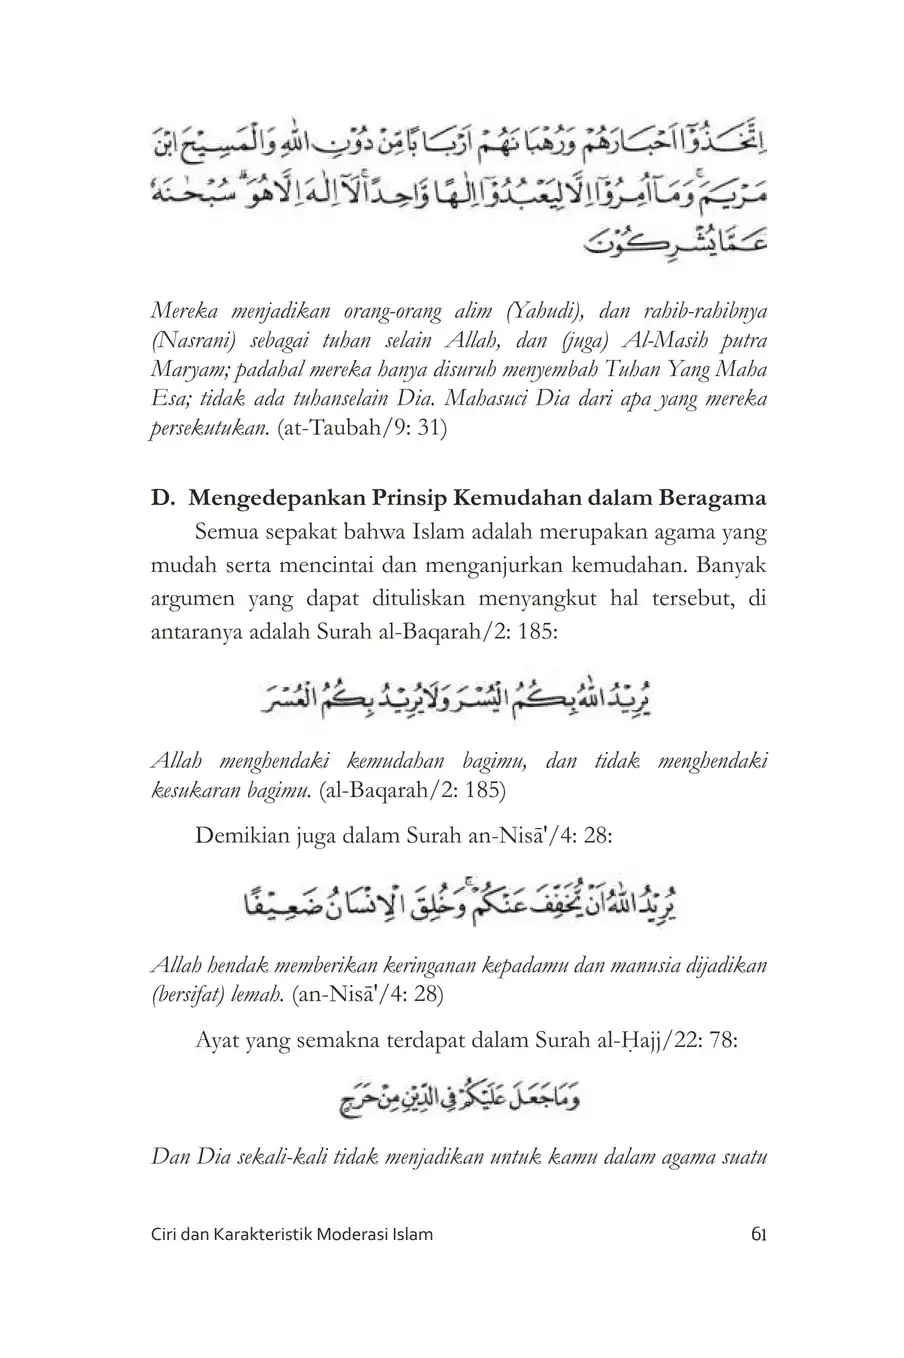 اِتَّخَذُوْٓا اَحْبَارَهُمْ وَرُهْبَانَهُمْ اَرْبَابًا مِّنْ دُوْنِ اللّٰهِ وَالْمَسِيْحَ ابْنَ
مَرْيَمَۚ وَمَآ اُمِرُوْٓا اِلَّا لِيَعْبُدُوْٓا اِلٰهًا وَّاحِدًاۚ لَآ اِلٰهَ اِلَّا هُوَۗ سُبْحٰنَهٗ
عَمَّا يُشْرِكُوْنَ
Mereka menjadikan orang-orang alim (Yahudi), dan rahib-rahibnya
(Nasrani) sebagai tuhan selain Allah, dan (juga) Al-Masih putra
Maryam; padahal mereka hanya disuruh menyembah Tuhan Yang Maha
Esa; tidak ada tuhanselain Dia. Mahasuci Dia dari apa yang mereka
persekutukan. (at-Taubah/9: 31)
D. Mengedepankan Prinsip Kemudahan dalam Beragama
Semua sepakat bahwa Islam adalah merupakan agama yang
mudah serta mencintai dan menganjurkan kemudahan. Banyak
argumen yang dapat dituliskan menyangkut hal tersebut, di
antaranya adalah Surah al-Baqarah/2: 185:
يُرِيْدُ اللّٰهُ بِكُمُ الْيُسْرَ وَلَا يُرِيْدُ بِكُمُ الْعُسْرَ
Allah menghendaki kemudahan bagimu, dan tidak menghendaki
kesukaran bagimu. (al-Baqarah/2: 185)
Demikian juga dalam Surah an-Nisā'/4: 28:
يُرِيْدُ اللّٰهُ اَنْ يُّخَفِّفَ عَنْكُمْۚ وَخُلِقَ الْاِنْسَانُ ضَعِيْفًا
Allah hendak memberikan keringanan kepadamu dan manusia dijadikan
(bersifat) lemah. (an-Nisā'/4: 28)
Ayat yang semakna terdapat dalam Surah al-Ḥajj/22: 78:
وَمَا جَعَلَ عَلَيْكُمْ فِى الدِّيْنِ مِنْ حَرَجٍ
Dan Dia sekali-kali tidak menjadikan untuk kamu dalam agama suatu
Ciri dan Karakteristik Moderasi Islam 61